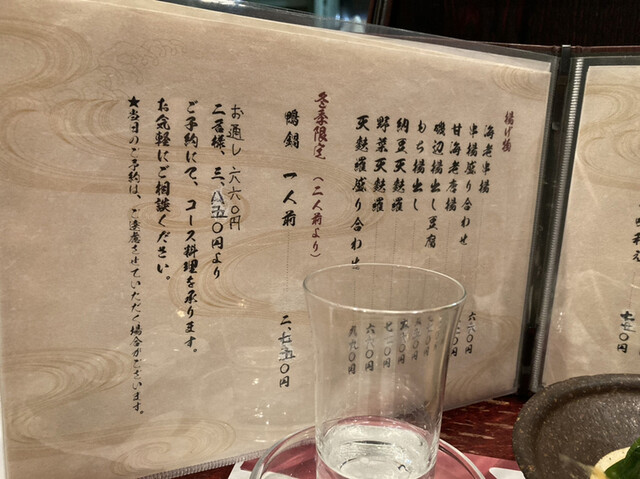 揚げ物
海老串揚 六六〇円
串揚盛り合わせ
甘海老唐揚
磯辺揚出し豆腐
もち揚出し
納豆天麩羅
野菜天麩羅 六六〇円
天麩羅盛り合わせ 九九〇円
冬季限定(二人前より)
鴨鍋 一人前 二、七五〇円
お通し 六六〇円
二名様、三、八五〇円より
ご予約にて、コース料理を承ります。
お気軽にご相談ください。
★当日のご予約は、ご遠慮させていただく場合がございます。
七七〇円